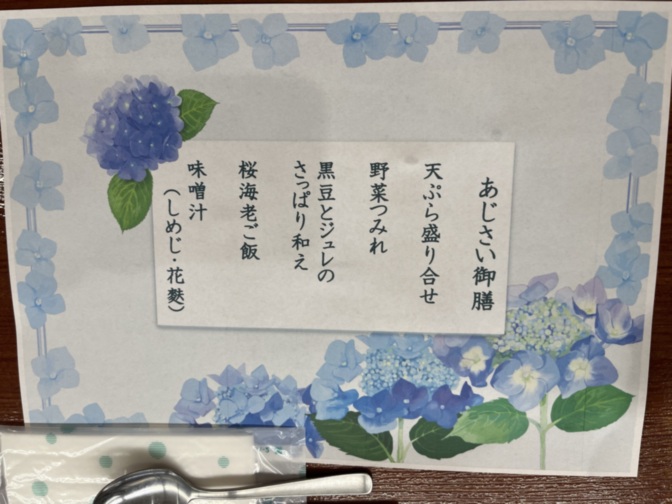 あじさい御膳
天ぷら盛り合せ
野菜つみれ
黒豆とジュレの
さっぱり和え
桜海老ご飯
味噌汁
（しめじ・花麩）